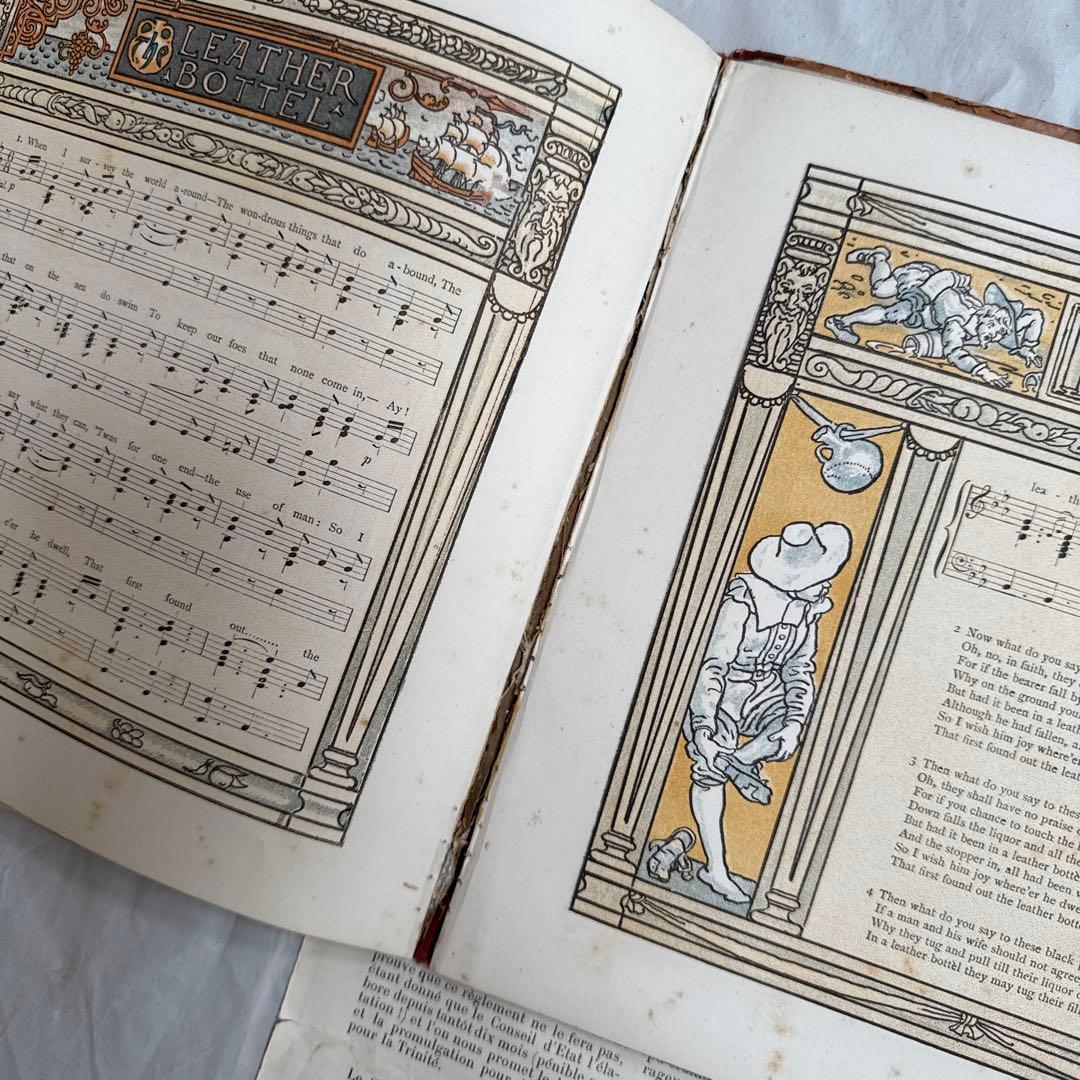 The LEATHER
BOTTEL
1. When I sur-vey the world a-round—The won-drous things that do a-bound, The
that on the sea do swim To keep our foes that none come in,— Ay!
p
say what they can, 'Twas for one end—the use of man: So I
e'er he dwell, That first found out......... the
lea - th
2 Now what do you say
Oh, no, in faith, they
For if the bearer fall by
Why on the ground you
But had it been in a leath
Although he had fallen, a
So I wish him joy where'er
That first found out the leat
3 Then what do you say to these
Oh, they shall have no praise
For if you chance to touch the
Down falls the liquor and all the
But had it been in a leather bottèl
And the stopper in, all had been
So I wish him joy where'er he dwe
That first found out the leather bott
4 Then what do you say to these black
If a man and his wife should not agree
Why they tug and pull till their liquor
In a leather bottèl they may tug their fil
prouve que ce règlement ne le fera pas,
étant donné que le Conseil d'Etat l'éla-
bore depuis tantôt dix mois (pénible
tation !) et l'on nous promet le
et la promulgation pour
pour la Trinité.
rage
Le